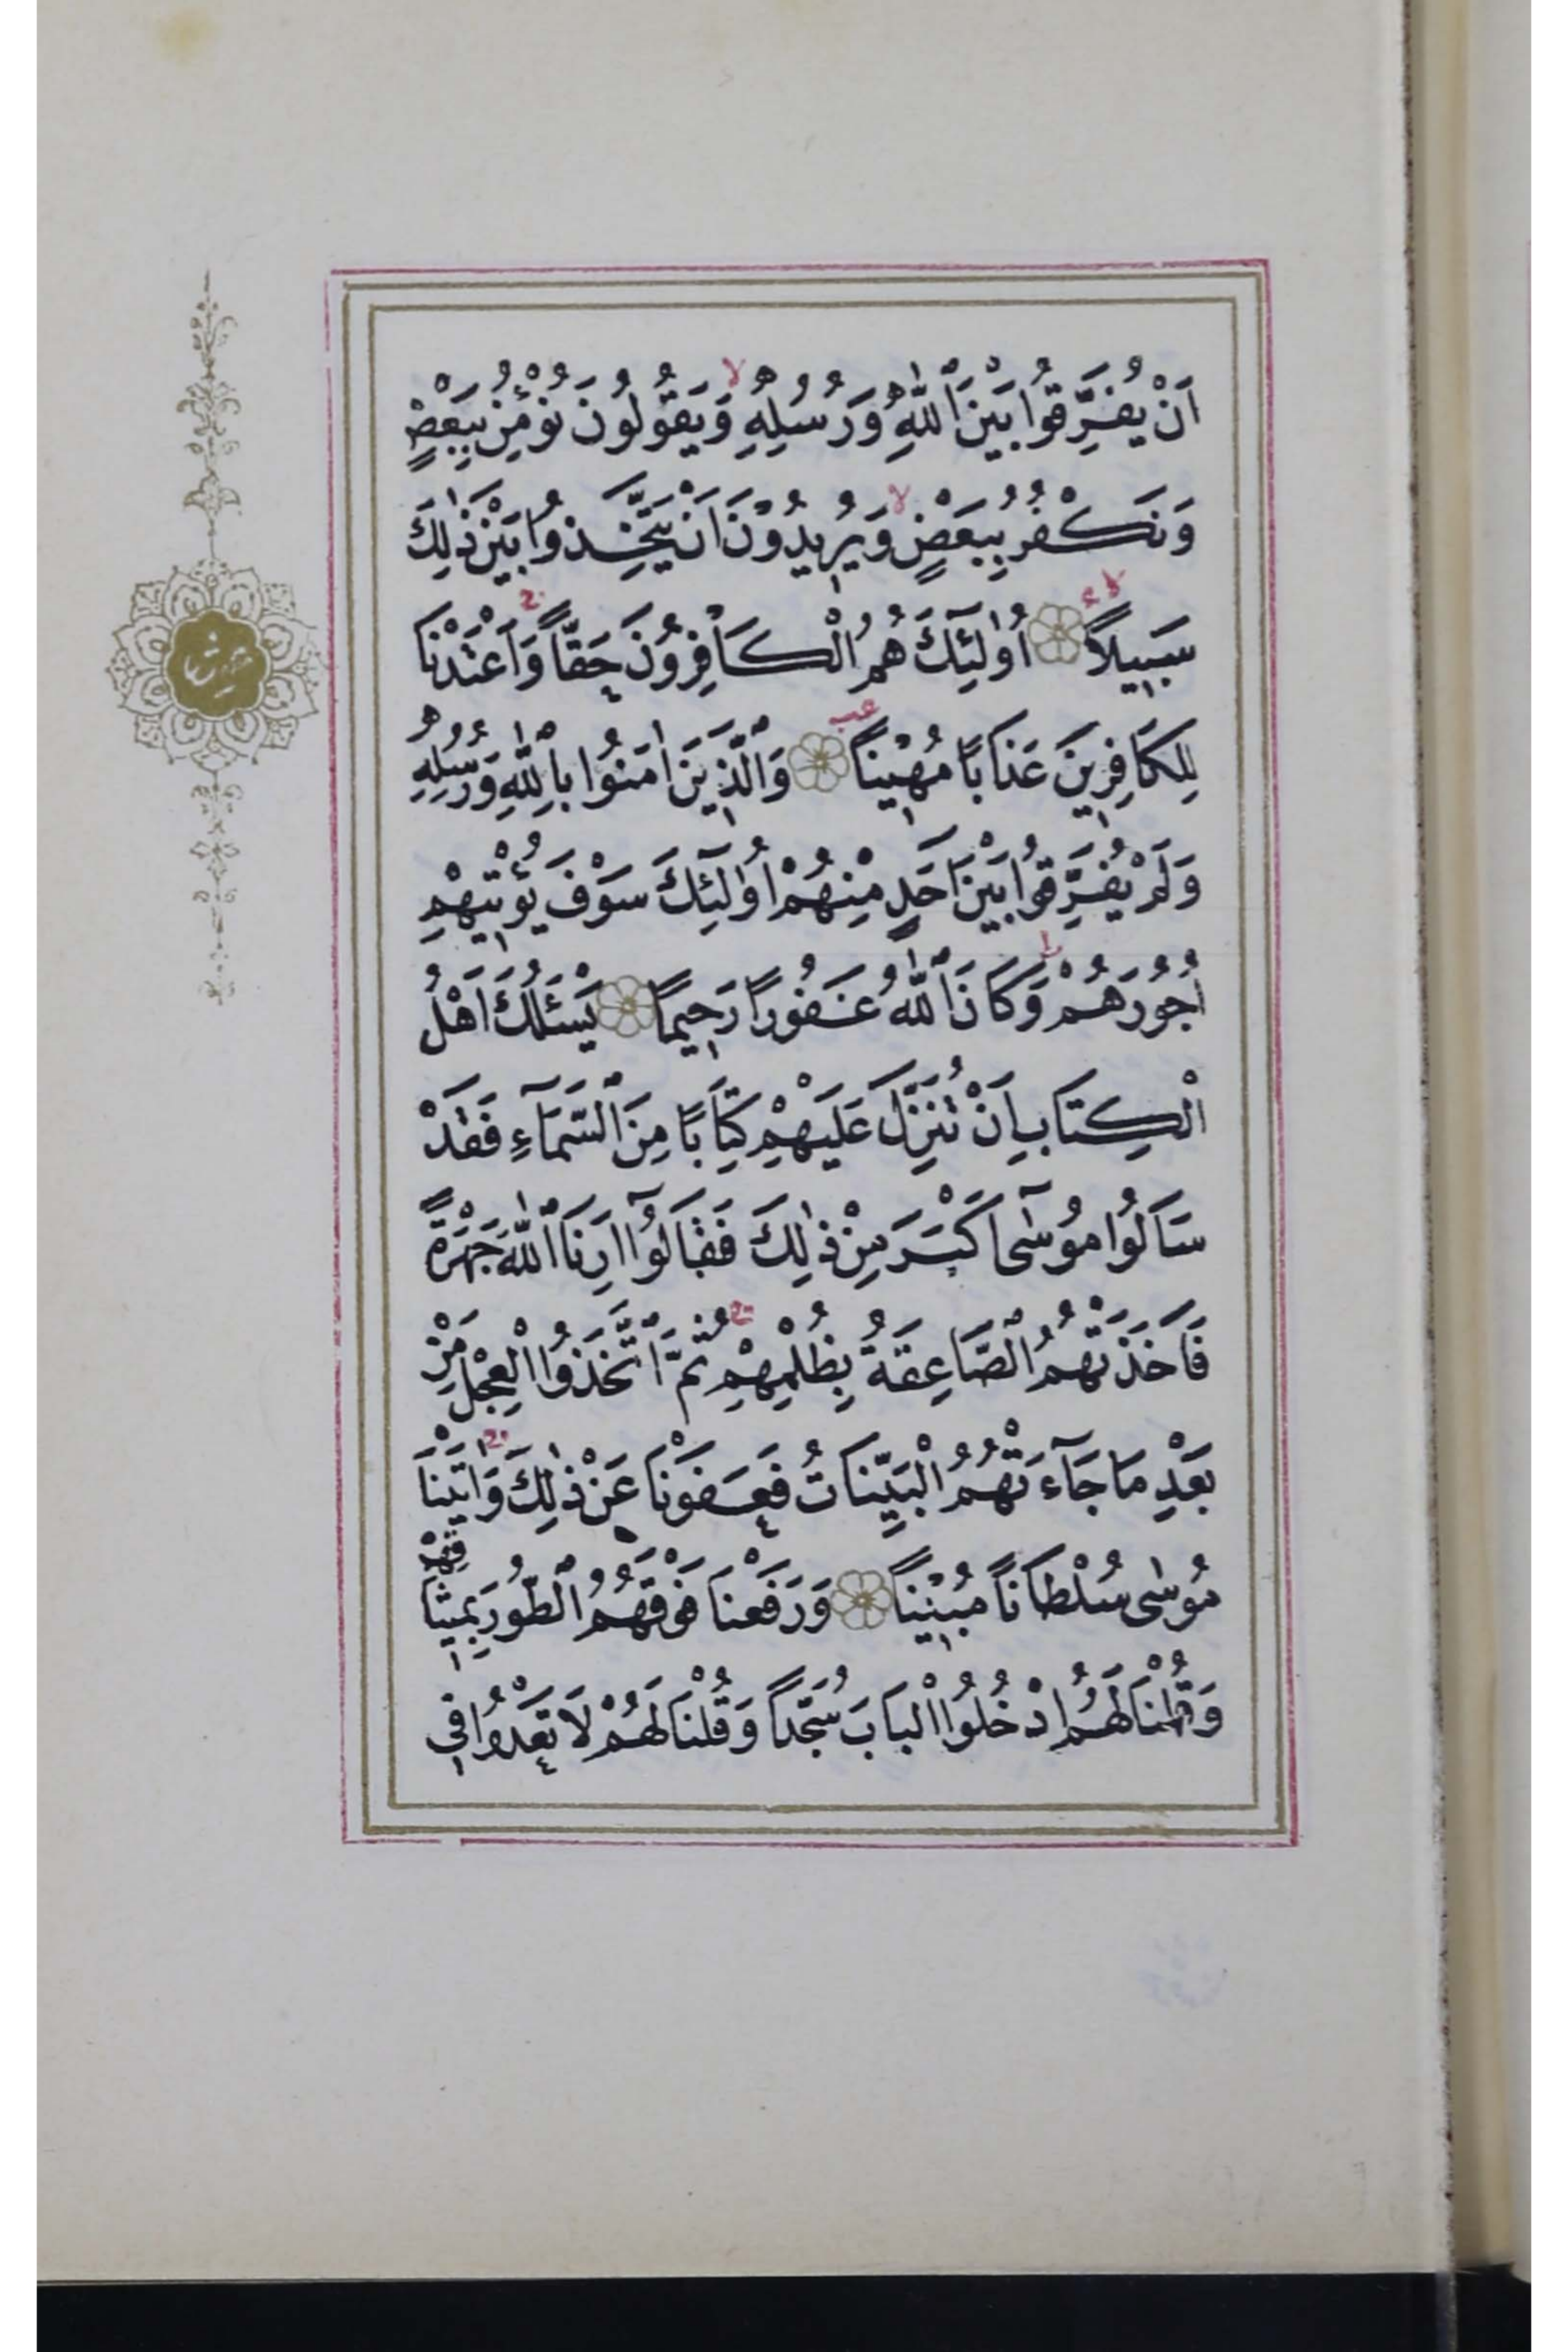 اَنْ يُفَرِّقُوا بَيْنَ اللّٰهِ وَرُسُلِهِ وَيَقُولُونَ نُؤْمِنُ بِبَعْضٍ
وَنَكْفُرُ بِبَعْضٍ وَيُرِيدُونَ اَنْ يَتَّخِذُوا بَيْنَ ذٰلِكَ
سَبِيلًا اُولٰئِكَ هُمُ الْكَافِرُونَ حَقًّا وَاَعْتَدْنَا
لِلْكَافِرِينَ عَذَابًا مُهِينًا وَالَّذِينَ اٰمَنُوا بِاللّٰهِ وَرُسُلِهِ
وَلَمْ يُفَرِّقُوا بَيْنَ اَحَدٍ مِنْهُمْ اُولٰئِكَ سَوْفَ يُؤْتِيهِمْ
اُجُورَهُمْ وَكَانَ اللّٰهُ غَفُورًا رَحِيمًا يَسْئَلُكَ اَهْلُ
الْكِتَابِ اَنْ تُنَزِّلَ عَلَيْهِمْ كِتَابًا مِنَ السَّمَآءِ فَقَدْ
سَاَلُوا مُوسٰٓى اَكْبَرَ مِنْ ذٰلِكَ فَقَالُوٓا اَرِنَا اللّٰهَ جَهْرَةً
فَاَخَذَتْهُمُ الصَّاعِقَةُ بِظُلْمِهِمْ ثُمَّ اتَّخَذُوا الْعِجْلَ مِنْ
بَعْدِ مَا جَآءَتْهُمُ الْبَيِّنَاتُ فَعَفَوْنَا عَنْ ذٰلِكَ وَاٰتَيْنَا
مُوسٰى سُلْطَانًا مُبِينًا وَرَفَعْنَا فَوْقَهُمُ الطُّورَ بِمِيثَاقِهِمْ
وَقُلْنَا لَهُمُ ادْخُلُوا الْبَابَ سُجَّدًا وَقُلْنَا لَهُمْ لَا تَعْدُوا فِي